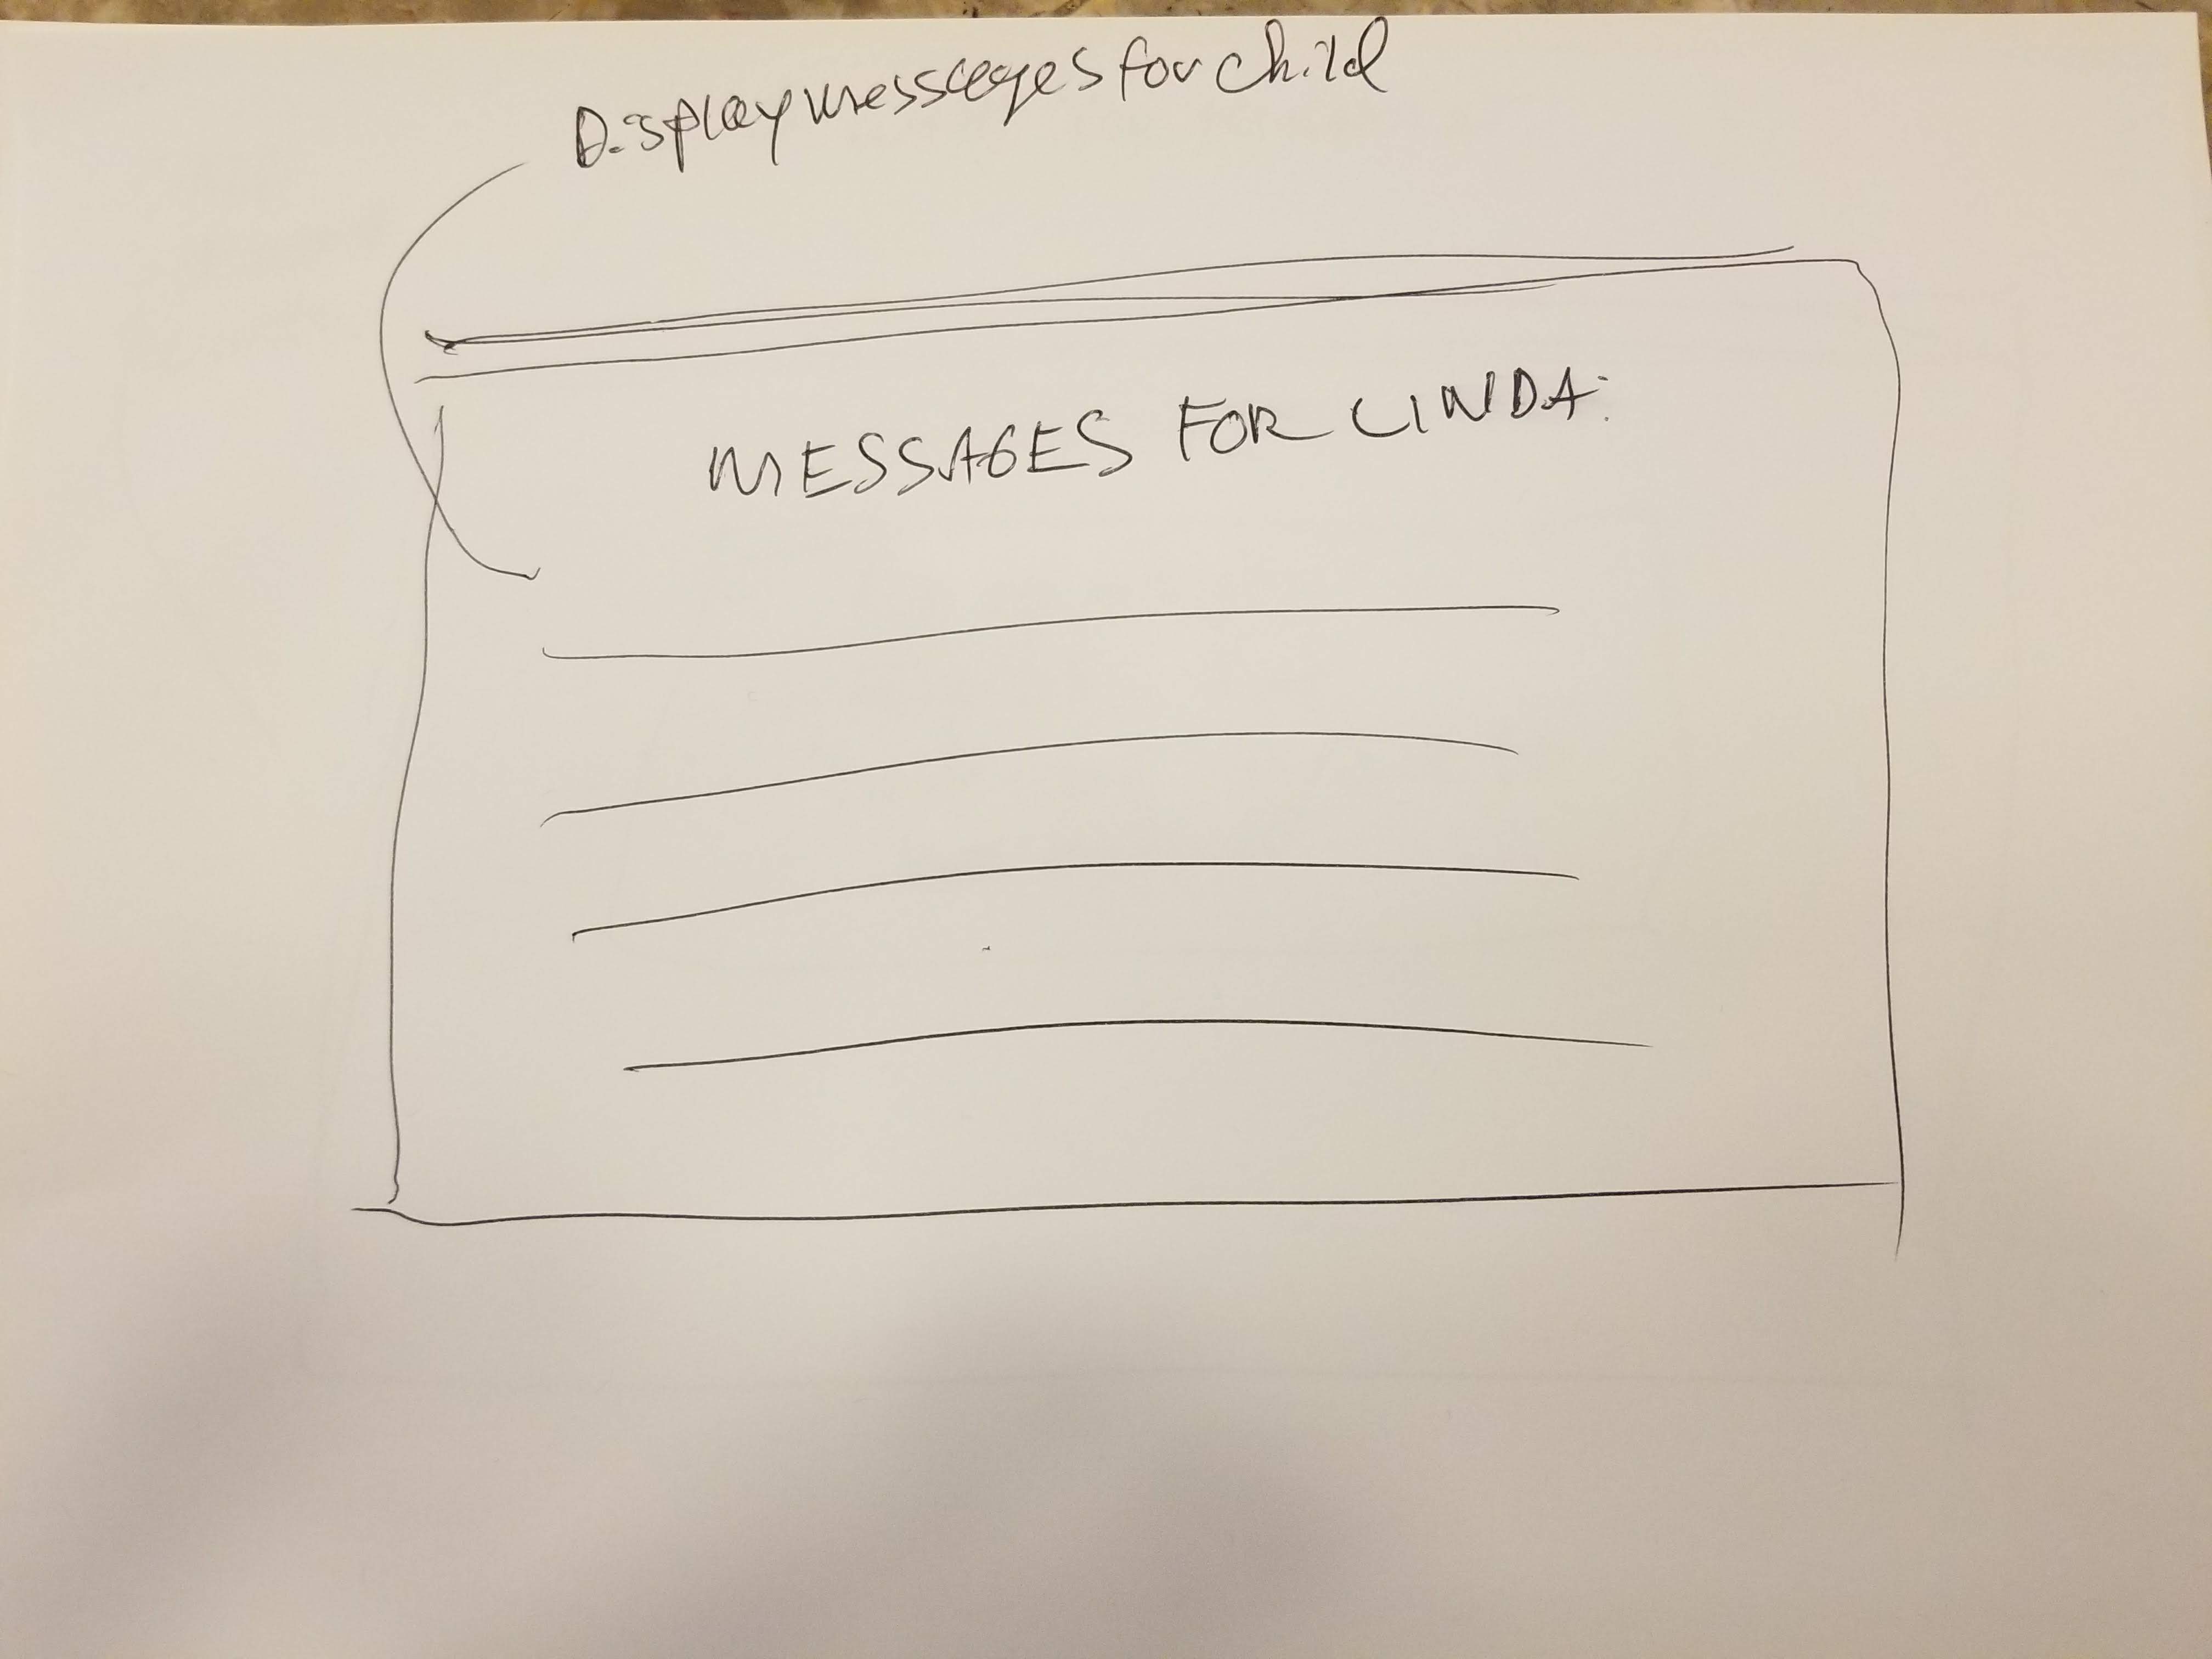 Display messages for child
MESSAGES FOR LINDA: